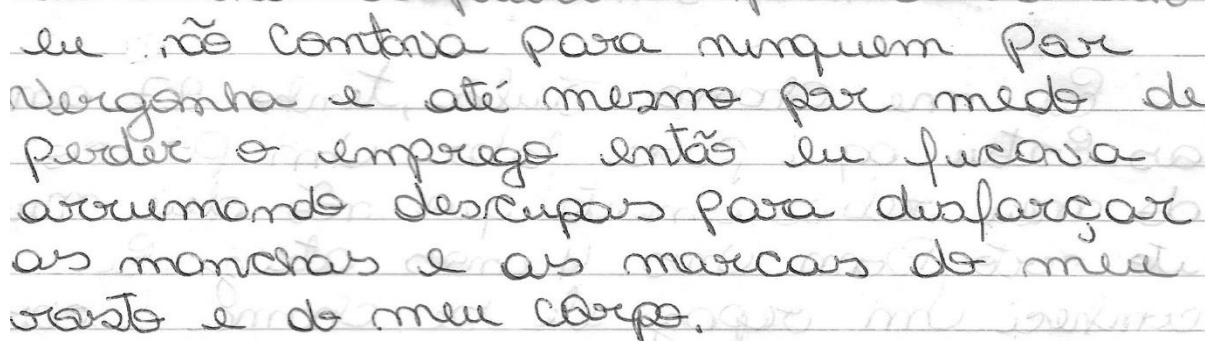 eu não contava para ninguem por
vergonha e até mesmo por medo de
perder o emprego então eu ficava
arrumando descupas para disfarçar
as manchas e as marcas do meu
rosto e do meu corpo.